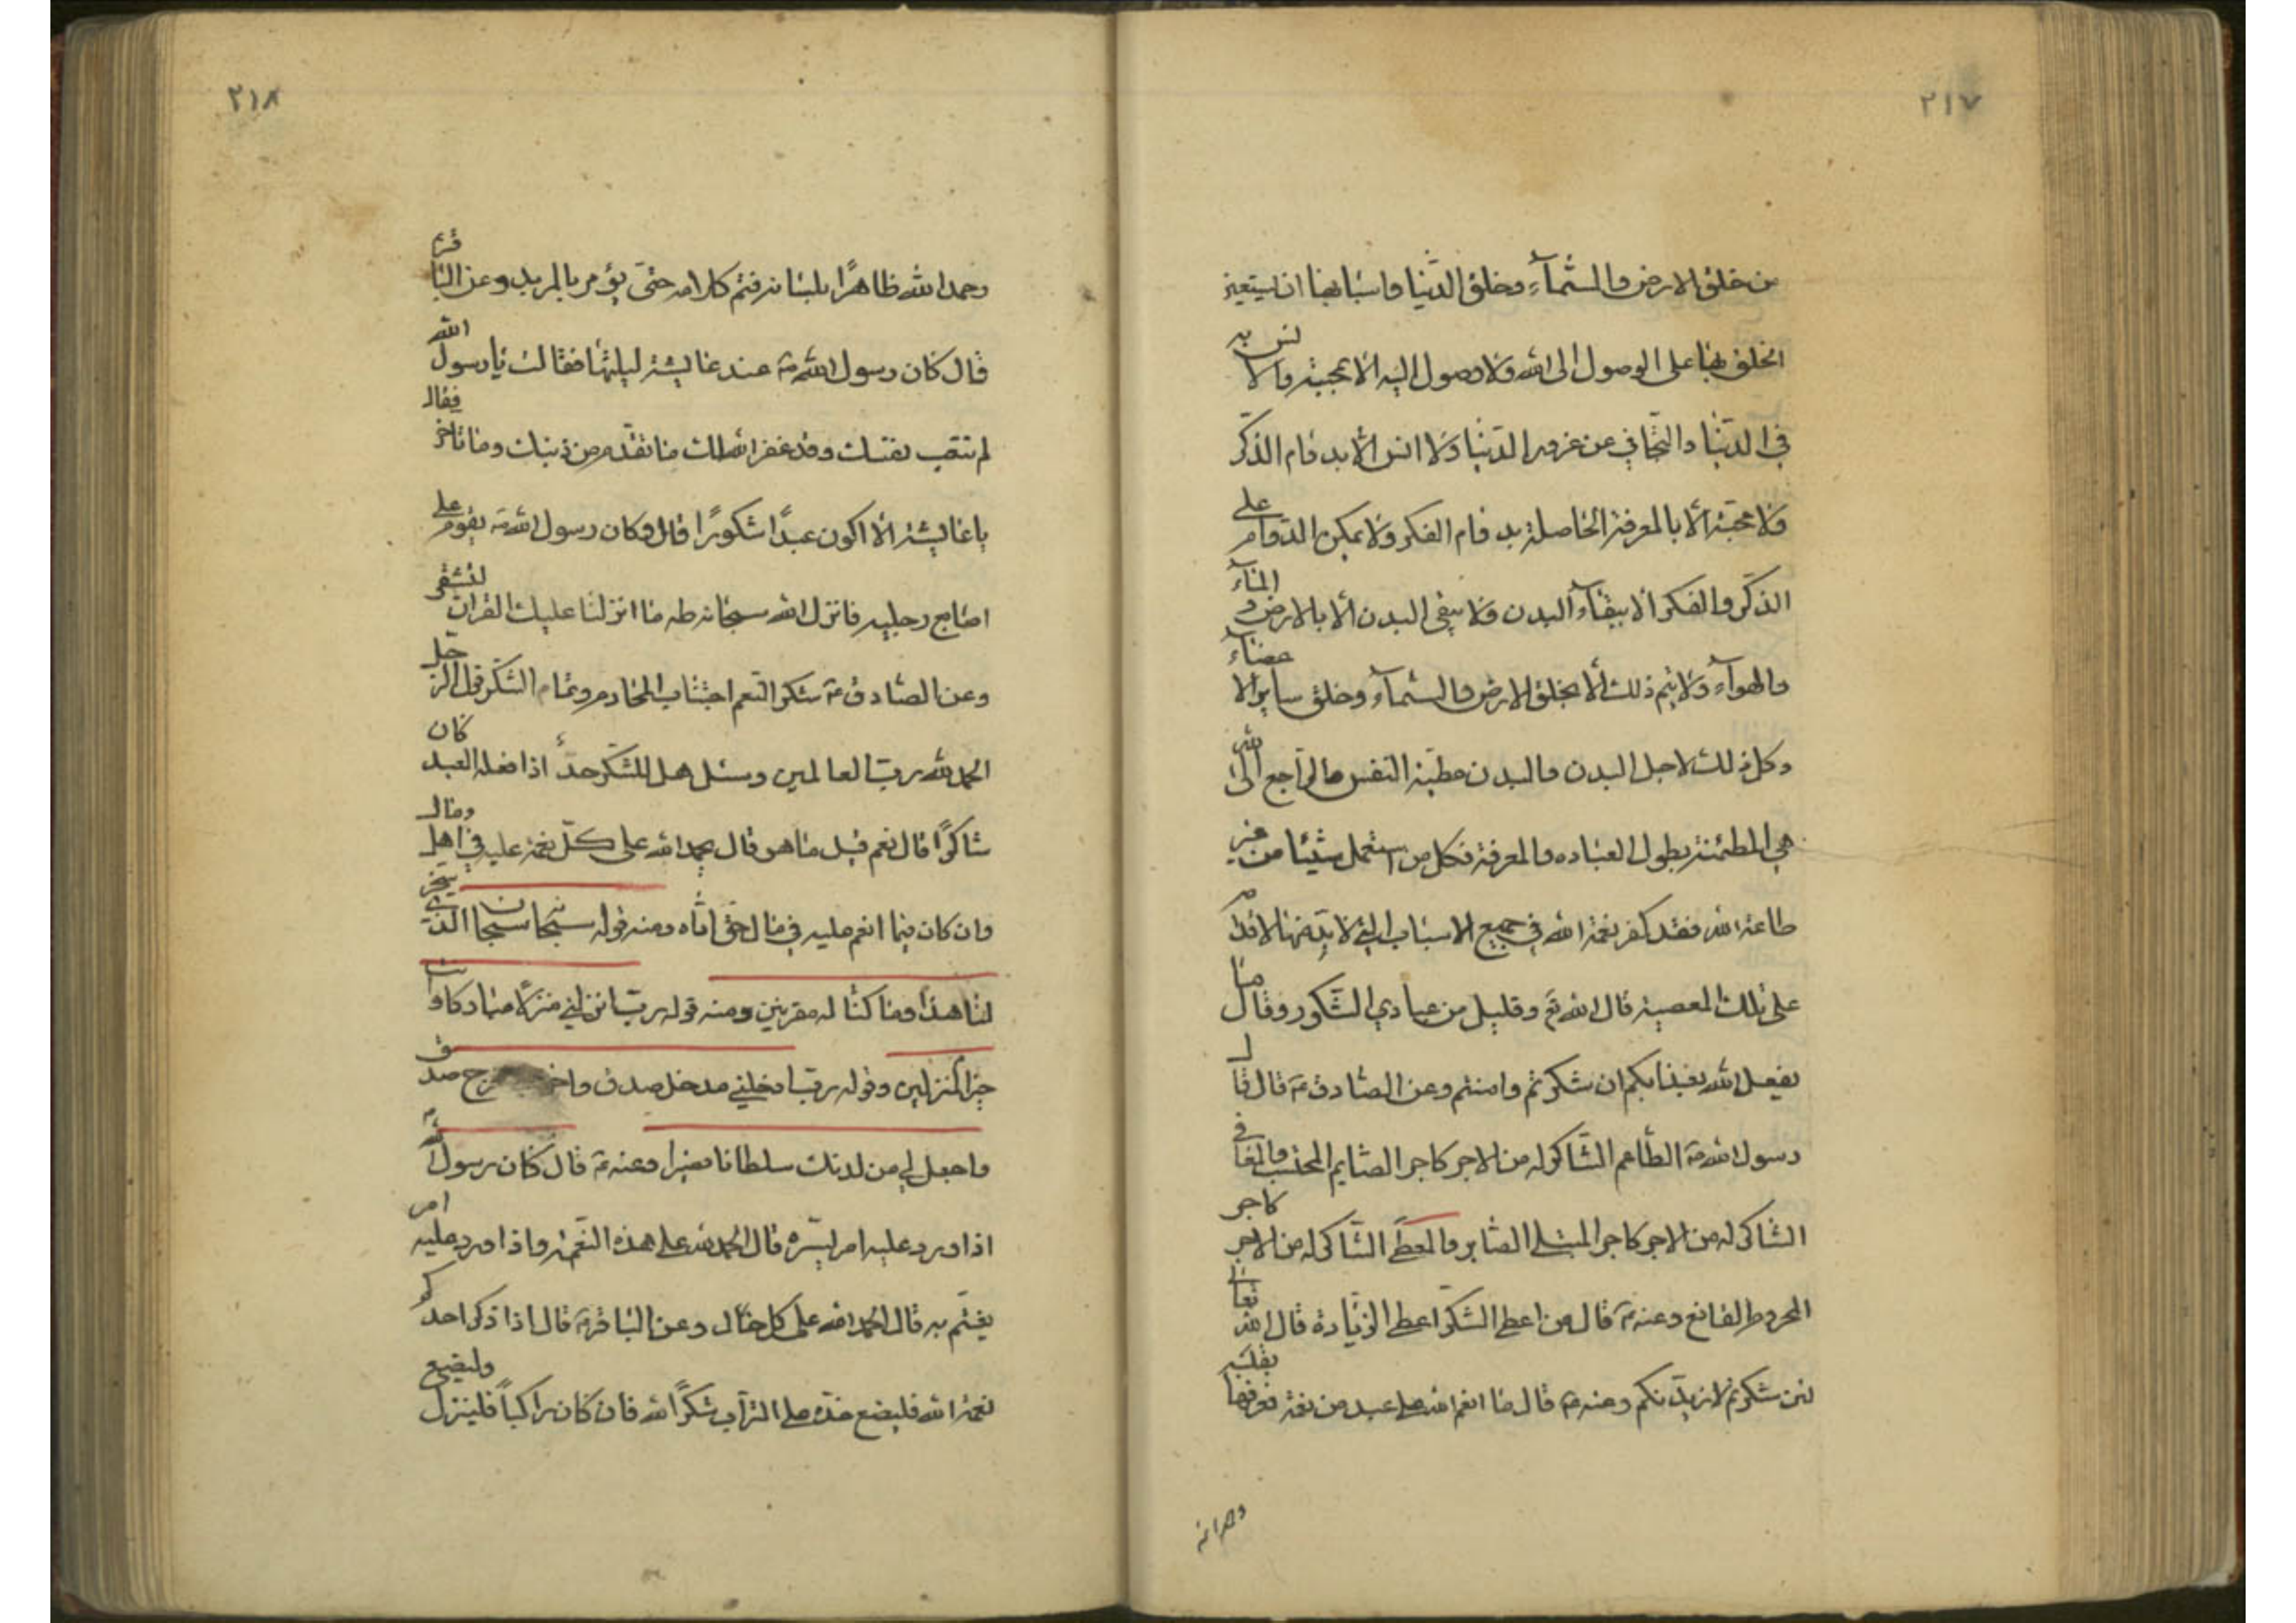 ٢١٧
من خلق الارض والسّمآء وخلق الدّنيا واسبابها ان يستعين
الخلق بها على الوصول الى الله ولا وصول اليه الا بمحبّته والانس به
في الدّنيا والتّجافي عن غرور الدّنيا ولا انس الا بدوام الذّكر
ولا محبّة الّا بالمعرفة الحاصلة بدوام الفكر ولا يمكن الدّوام على
الذّكر والفكر الا ببقآء البدن ولا يبقى البدن الّا بالارض و المآء
والهوآء ولا يتم ذلك الّا بخلق الارض والسّمآء وخلق ساير الاعضآء
وكل ذلك لاجل البدن والبدن مطيّة النفس والرّاجع الى الله
هي المطمئنة بطول العباده والمعرفة فكل من استعمل شيئا من غير
طاعة الله فقد كفر نعمة الله في جميع الاسباب التي لا بدّ منها لاقدامه
على تلك المعصية قال الله تع وقليل من عبادي الشّكور وقال ما
يفعل الله بعذابكم ان شكرتم وامنتم وعن الصّادق ع قال قال
رسول الله ص الطّاعم الشّاكر له من الاجر كاجر الصّايم المحتسب والمعافى
الشّاكر له من الاجر كاجر المبتلى الصّابر والمعطى الشّاكر له من الاجر كاجر
المحروم القانع وعنه ع قال من اعطى الشّكر اعطى الزّيادة قال الله تعالى
لئن شكرتم لازيدنّكم وعنه ع قال ما انعم الله على عبد من نعمة فعرفها بقلبه
وحمد الله
٢١٨
وحمد الله ظاهرًا بلسانه فتم كلامه حتّى يؤمر بالمزيد وعن الباقر ع
قال كان رسول الله ص عند عايشة ليلتها فقالت يا رسول الله
لم تتعب نفسك وقد غفر الله لك ما تقدّم من ذنبك وما تاخر فقال
يا عايشة الا اكون عبدًا شكورًا قال وكان رسول الله ص يقوم على
اصابع رجليه فانزل الله سبحانه طه ما انزلنا عليك القران لتشقى
وعن الصّادق ع شكر النّعم اجتناب المحارم وتمام الشّكر قول الرّجل
الحمد لله ربّ العالمين وسئل هل للشّكر حدّ اذا فعله العبد كان
شاكرًا قال نعم قيل ما هو قال يحمد الله على كلّ نعمة عليه في اهل ومال
وان كان فيما انعم عليه في مال حق ادّاه ومنه قوله سبحانه سبحان الذي سخر
لنا هذا وما كنّا له مقرنين ومنه قوله ربّ انزلني منزلا مباركا وانت
خير المنزلين وقوله ربّ ادخلني مدخل صدق واخرجني مخرج صدق
واجعل لي من لدنك سلطانا نصيرا وعنه ع قال كان رسول الله ص
اذا ورد عليه امر يسّره قال الحمد لله على هذه النّعمة واذا ورد عليه امر
يغتم به قال الحمد لله على كل حال وعن الباقر ع قال اذا ذكر احدكم
نعمة الله فليضع خدّه على التراب شكرًا لله فان كان راكباً فلينزل وليضع